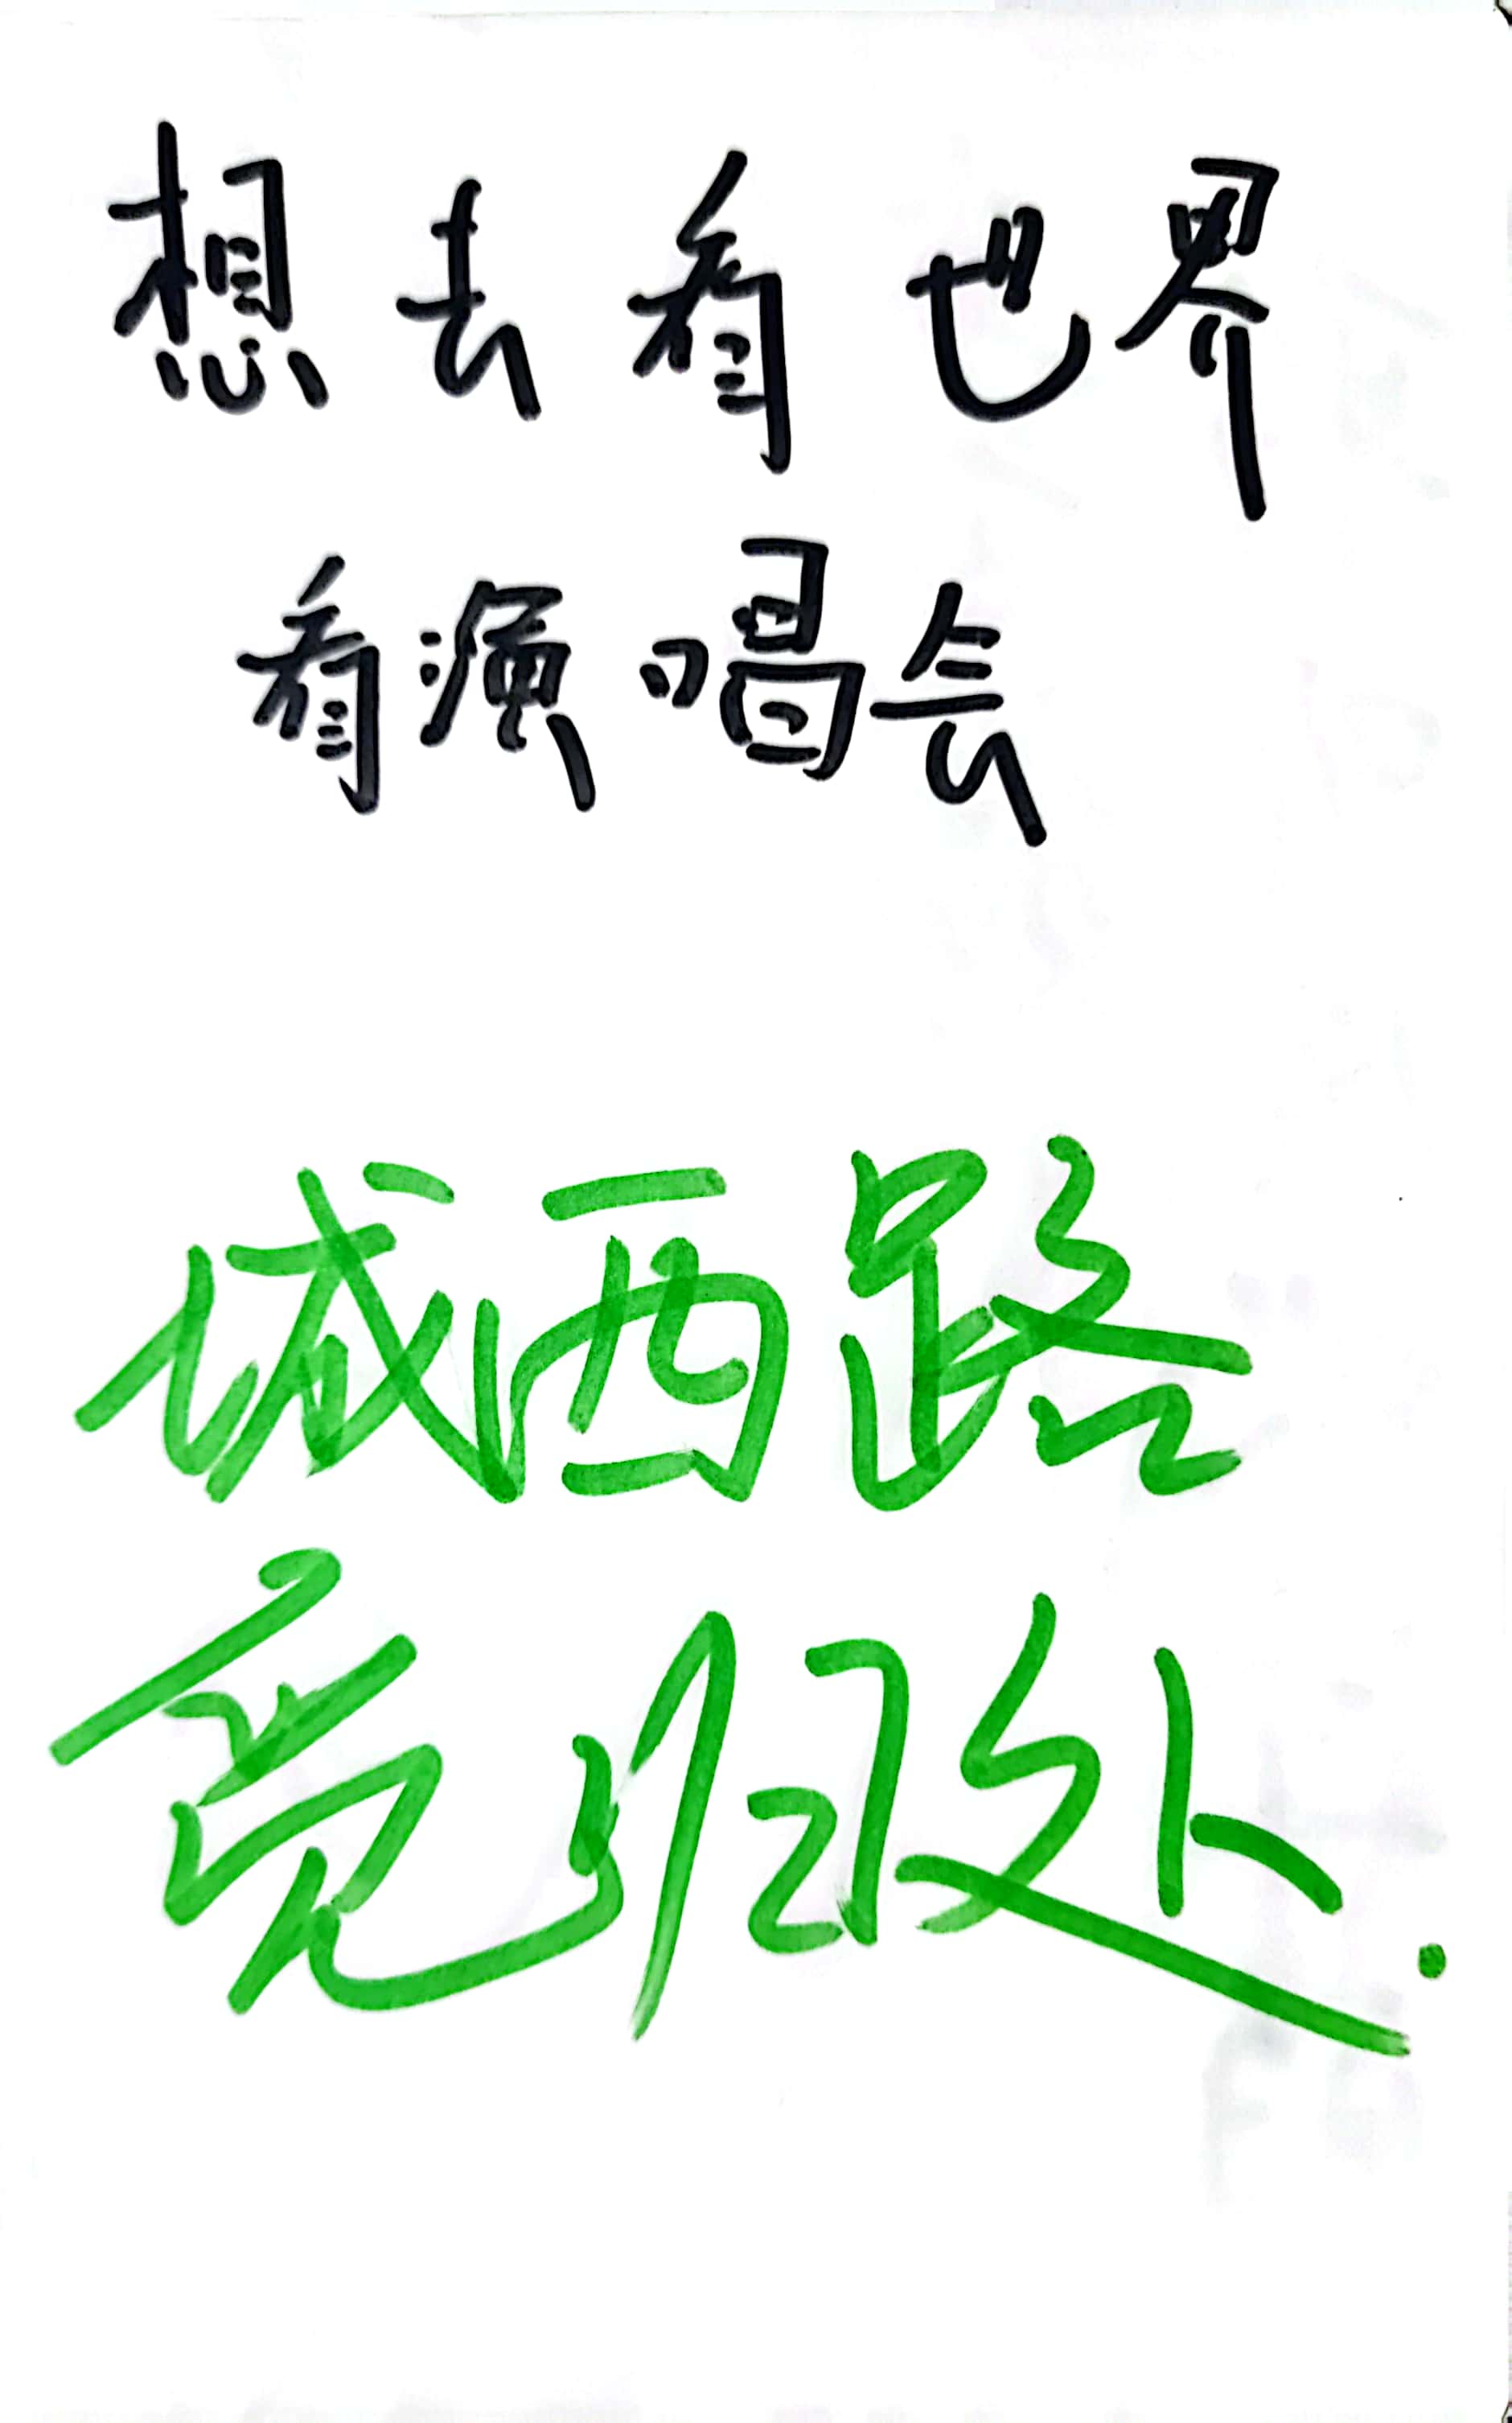 想去看世界
看演唱会
城西路
觅归处.